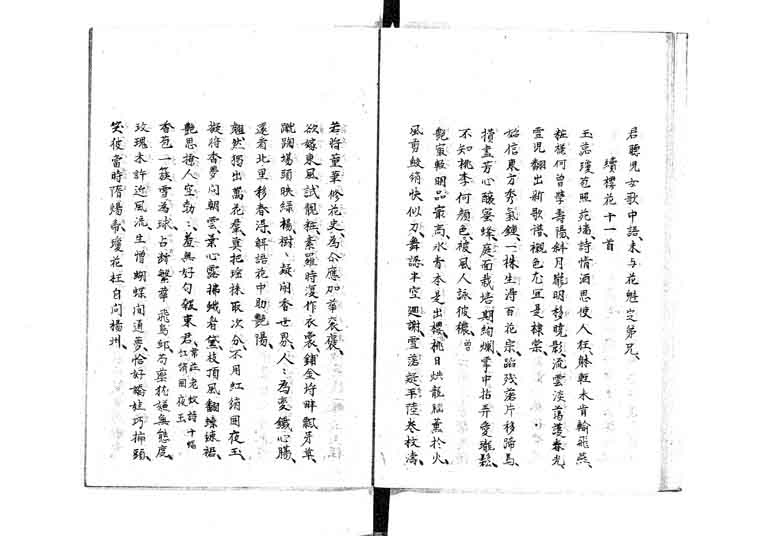 君聽兒女歌中語未与花魁定弟兄、
續櫻花十一首
玉蕊瓊苞照苑墻、詩情酒思使人狂、躰輕未肯輸飛燕、
粧樣何曾學壽陽、斜月朧明移曉影、流雲淡蕩護春光、
雪兒翻出新歌譜、襯色尤宜是棣棠、
始信東方秀氣鍾、一株生得百花宗、蹈殘落片移蹄馬、
攪盡芳心釀蜜蜂、庭面栽培期絢爛、掌中拈弄愛瓏鬆、
不知桃李何顏色、被風人詠彼穠、
艷寵敢明品最高、水香本是出櫻桃、日烘龍腦薰於火、
風剪鮫綃快似刀、舞認半空廻謝雪、落疑平陸卷枚濤、
若將董筆修花史、為今應加華袞褒、
欲嫁東風試靚粧、素羅時復作衣裳、鋪金埒畔飄芳草、
蹴踘場頭映綠楊、樹〻凝開香世界、人〻為変鐵心腸、
還看北里移春得、解語花中助艷陽、
超然獨出萬花羣、莫把繪抹取次分、不用紅綃圍夜玉、
擬將香夢問朝雲、葉心露拂纖眉黛、枝頂風翻練裙、
艷思撩人空勃〻、羞無好句報東君、
香苞一簇雪為球、占斷繁華飛鳥邱、芍藥就嫌無態度、
玫瑰未許近風流、生憎蝴蝶间通夢、恰好嬌娃巧插頭、
笑彼當時隋煬帝、瓊花枉自問揚州、